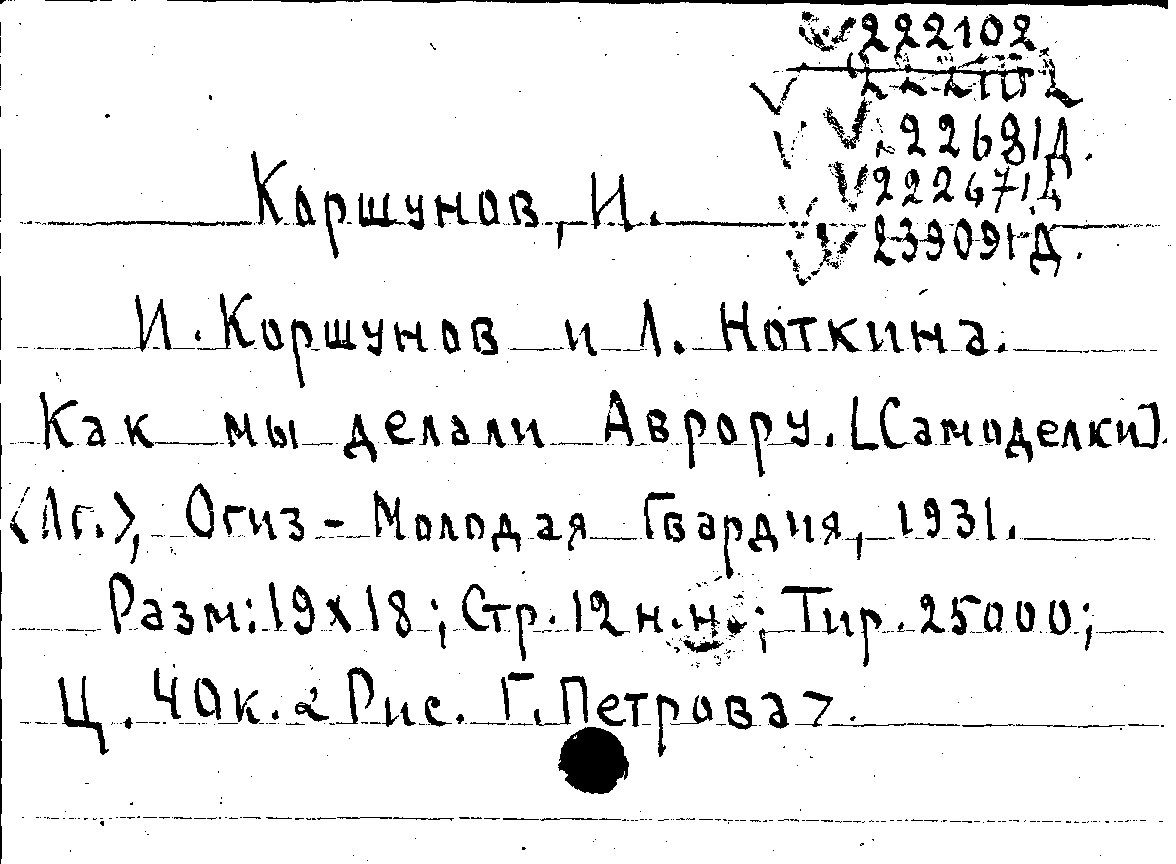 222102
222102
222681Д.
222671Д
239091Д.
Коршунов, И.
И. Коршунов и Л. Ноткина.
Как мы делали Аврору. [Самоделки].
<Лг.>, Огиз - Молодая Гвардия, 1931.
Разм: 19х18; Стр. 12 н.н.; Тир. 25000;
Ц. 40к. <Рис. Г. Петрова>.